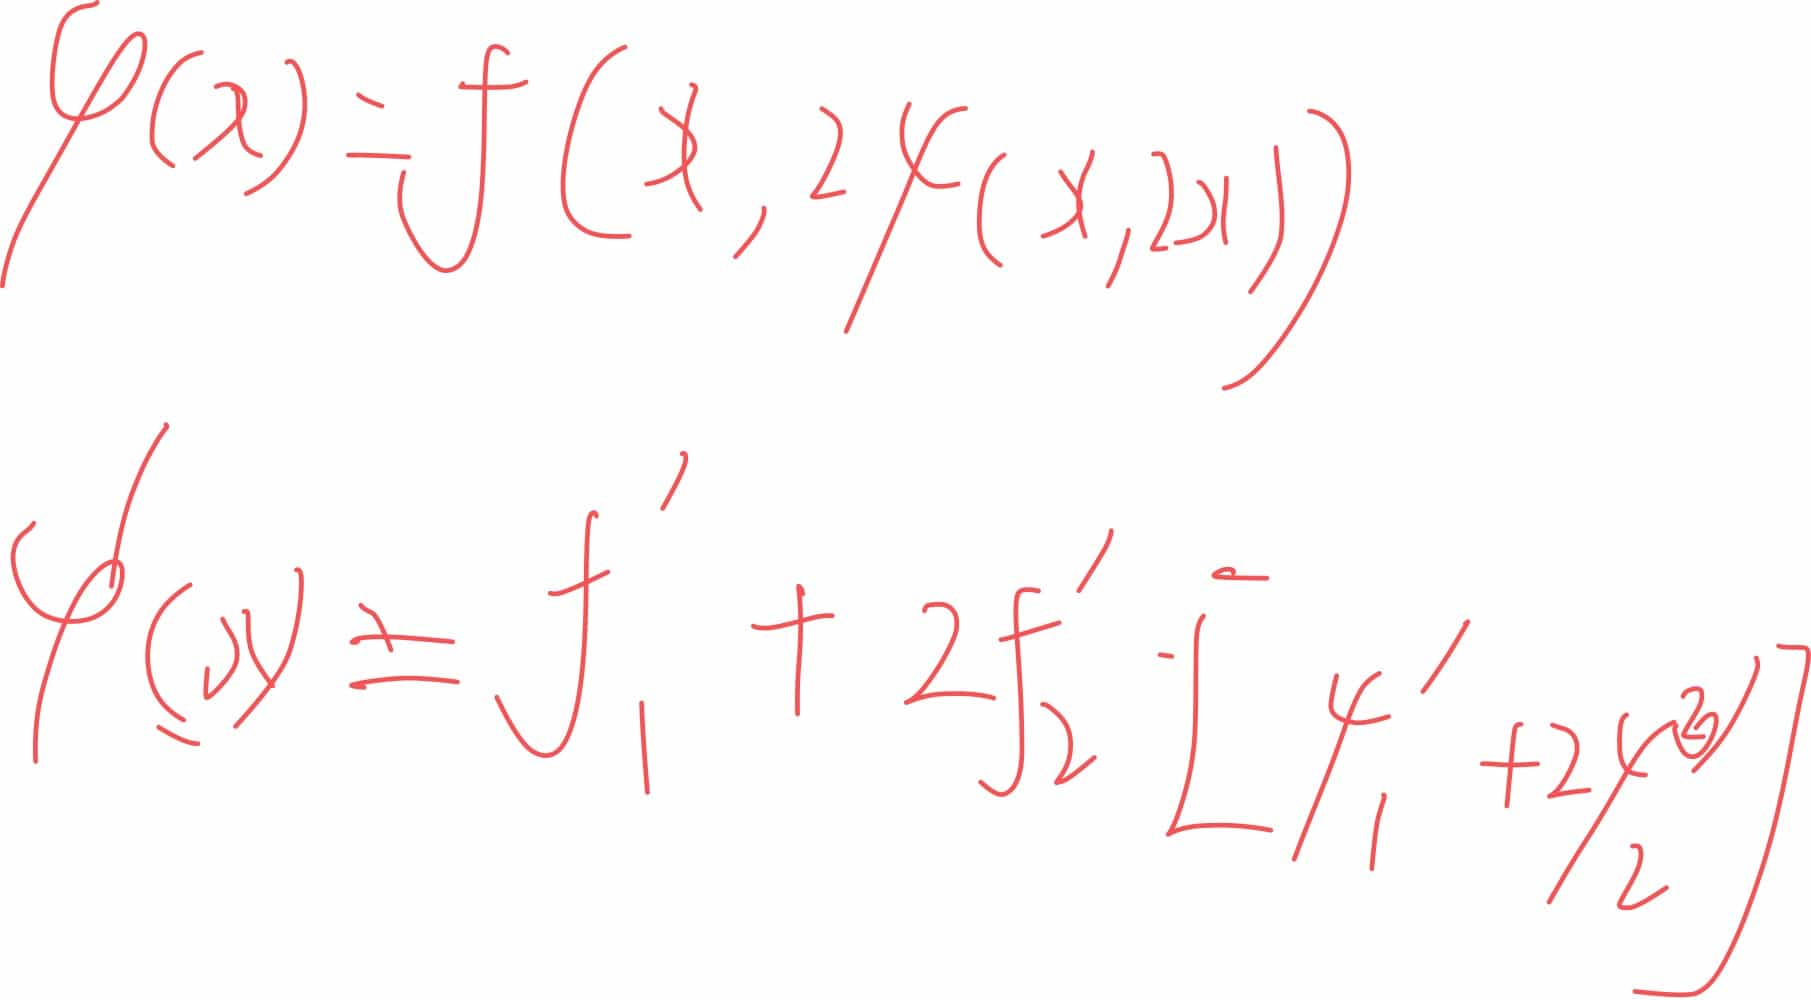 φ(x) = f(x, 2φ(x, 2x))
φ'(x) = f₁' + 2f₂' · [φ₁' + 2φ₂']